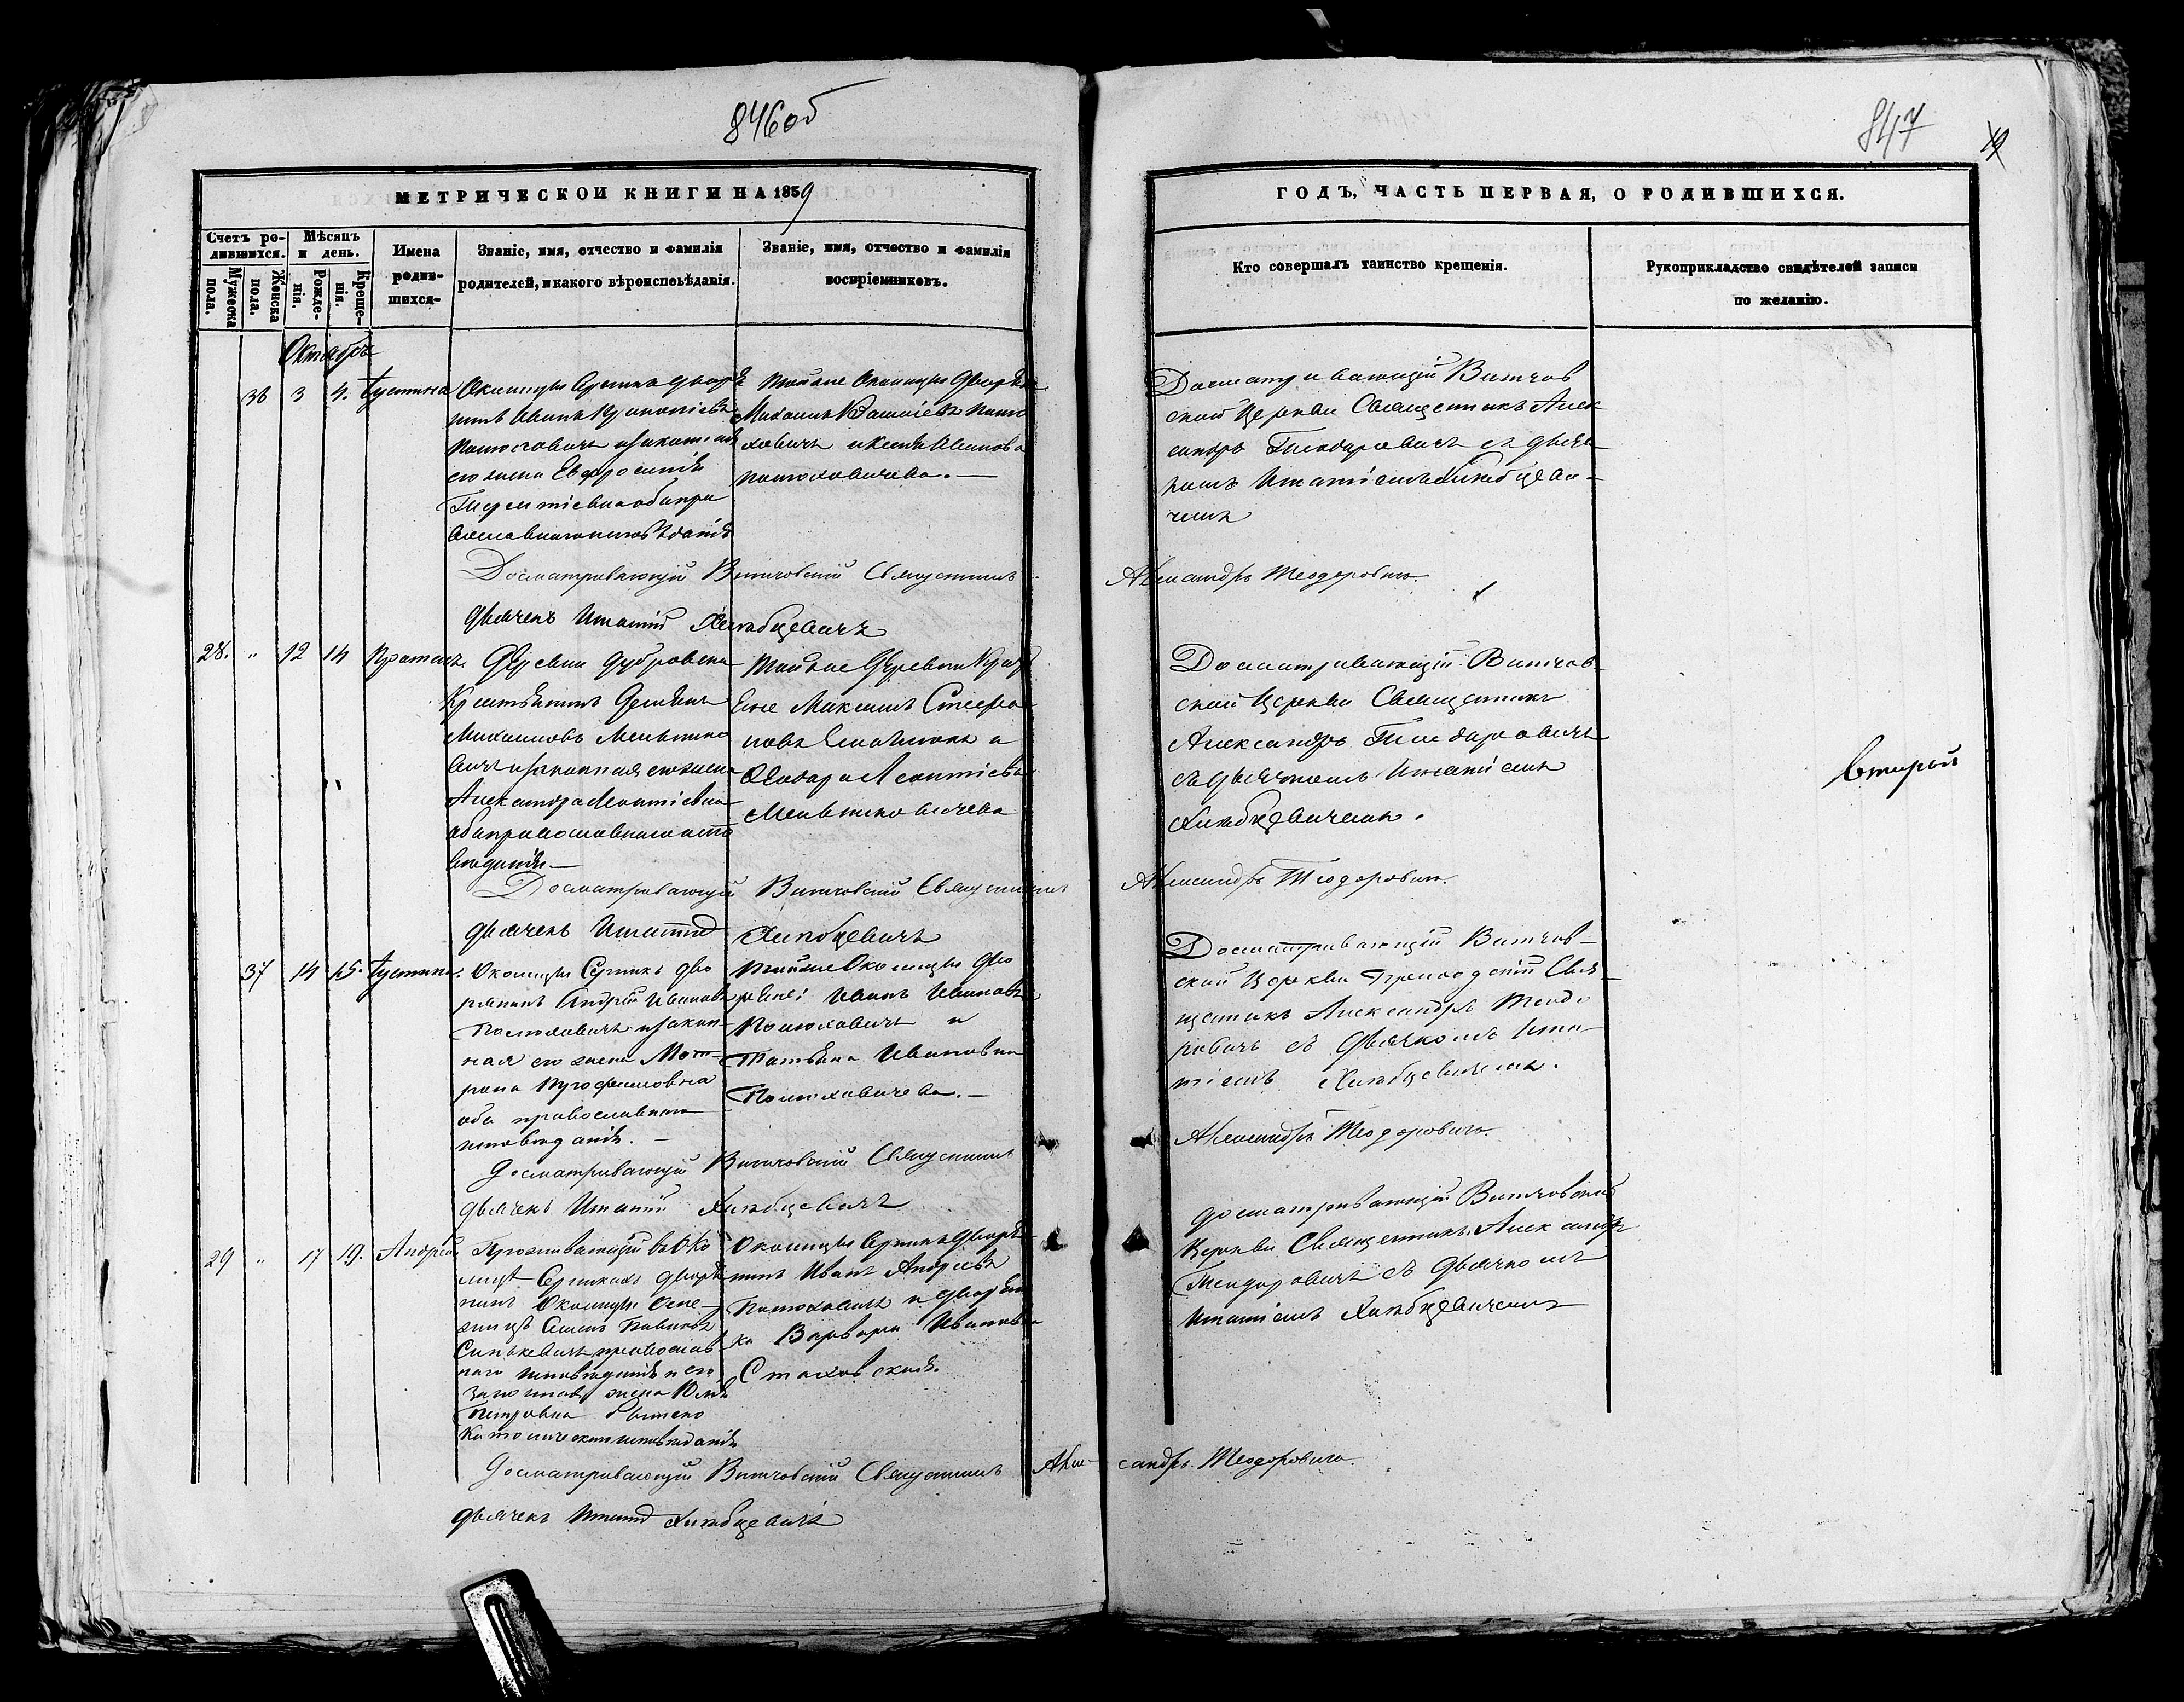 846об
847
МЕТРИЧЕСКОЙ КНИГИ НА 1859
ГОДЪ, ЧАСТЬ ПЕРВАЯ, О РОДИВШИХСЯ.
Счетъ ро-
дившихся.
Мужеска
пола.
Женска
пола.
Мѣсяцъ
и день.
Рожде-
нія.
Креще-
нія.
Имена
родив-
шихся-
Званіе, имя, отчество и фамилія
родителей, и какого вѣроисповѣданія.
Званіе, имя, отчество и фамилія
воспріемниковъ.
Кто совершалъ таинство крещенія.
Рукоприкладство свидѣтелей записи
по желанію.
Октябрь
36 3 4. Іустина
Околицы Серникъ дворя
нинъ Иванъ
Полюховичъ и законная
его жена Евфросинія
Терентіевна оба пра
вославнаго исповѣданія
Тойже Околицы Дворян
Михаилъ Полю
ховичъ и Иванова
Полюховичева. —
Досматривающій Витчов
ской Церкви Священникъ Алек
сандръ Теодоровичъ съ дьяч
комъ Игнатіемъ Хлѣбцеви-
чемъ
Досматривающій Витчовскій Священникъ Александръ Теодоровичъ
дьячекъ Игнатій Хлѣбцевичъ
28. " 12 14
Деревни Дубровска
Крестьянинъ Демьянъ
Михаиловъ Мельнико
вичъ и законная его жена
Александра Леонтіевна
оба православнаго испо
веданія —
Тойже Деревни Крестья
Максимъ Стефа
новъ и
Леонтіева
Мельниковичева
Досматривающій Витчов
ской Церкви Священникъ
Александръ Теодоровичъ
съ дьячкомъ Игнатіемъ
Хлѣбцевичемъ.
вторый
Досматривающій Витчовскій Священникъ Александръ Теодоровичъ.
дьячекъ Игнатій Хлѣбцевичъ
37 14 15. Іустина.
Околицы Серникъ дво
рянинъ Андрей Ивановъ
Полюховичъ и закон-
ная его жена Мот-
рона
оба православнаго
исповеданія. —
Тойже Околицы Дво
Иванъ Ивановъ
Полюховичъ и
Татьяна Ивановна
Полюховичева. —
Досматривающій Витчов-
ской Церкви Свя-
щенникъ Александръ Теодо
ровичъ съ Дьячкомъ Игна-
тіемъ Хлѣбцевичемъ.
Досматривающій Витчовскій Священникъ Александръ Теодоровичъ.
дьячекъ Игнатій Хлѣбцевичъ
29 " 17 19. Андрей
Проживающій въ Око
лицѣ Серникахъ дворя
нинъ Околицы
Павловъ
Синькевичъ православ
наго исповеданія и его
жена Юлія
Петровна Римско
Католическаго исповеданія
Околицы Серникъ Дворя-
нинъ Иванъ Андреевъ
Полюховичъ и дворян
ка Варвара Иванова
Стаховская.
Досматривающій Витчовской
Церкви Священникъ Александръ
Теодоровичъ съ Дьячкомъ
Игнатіемъ Хлѣбцевичемъ
Досматривающій Витчовскій Священникъ Александръ Теодоровичъ.
дьячекъ Игнатій Хлѣбцевичъ